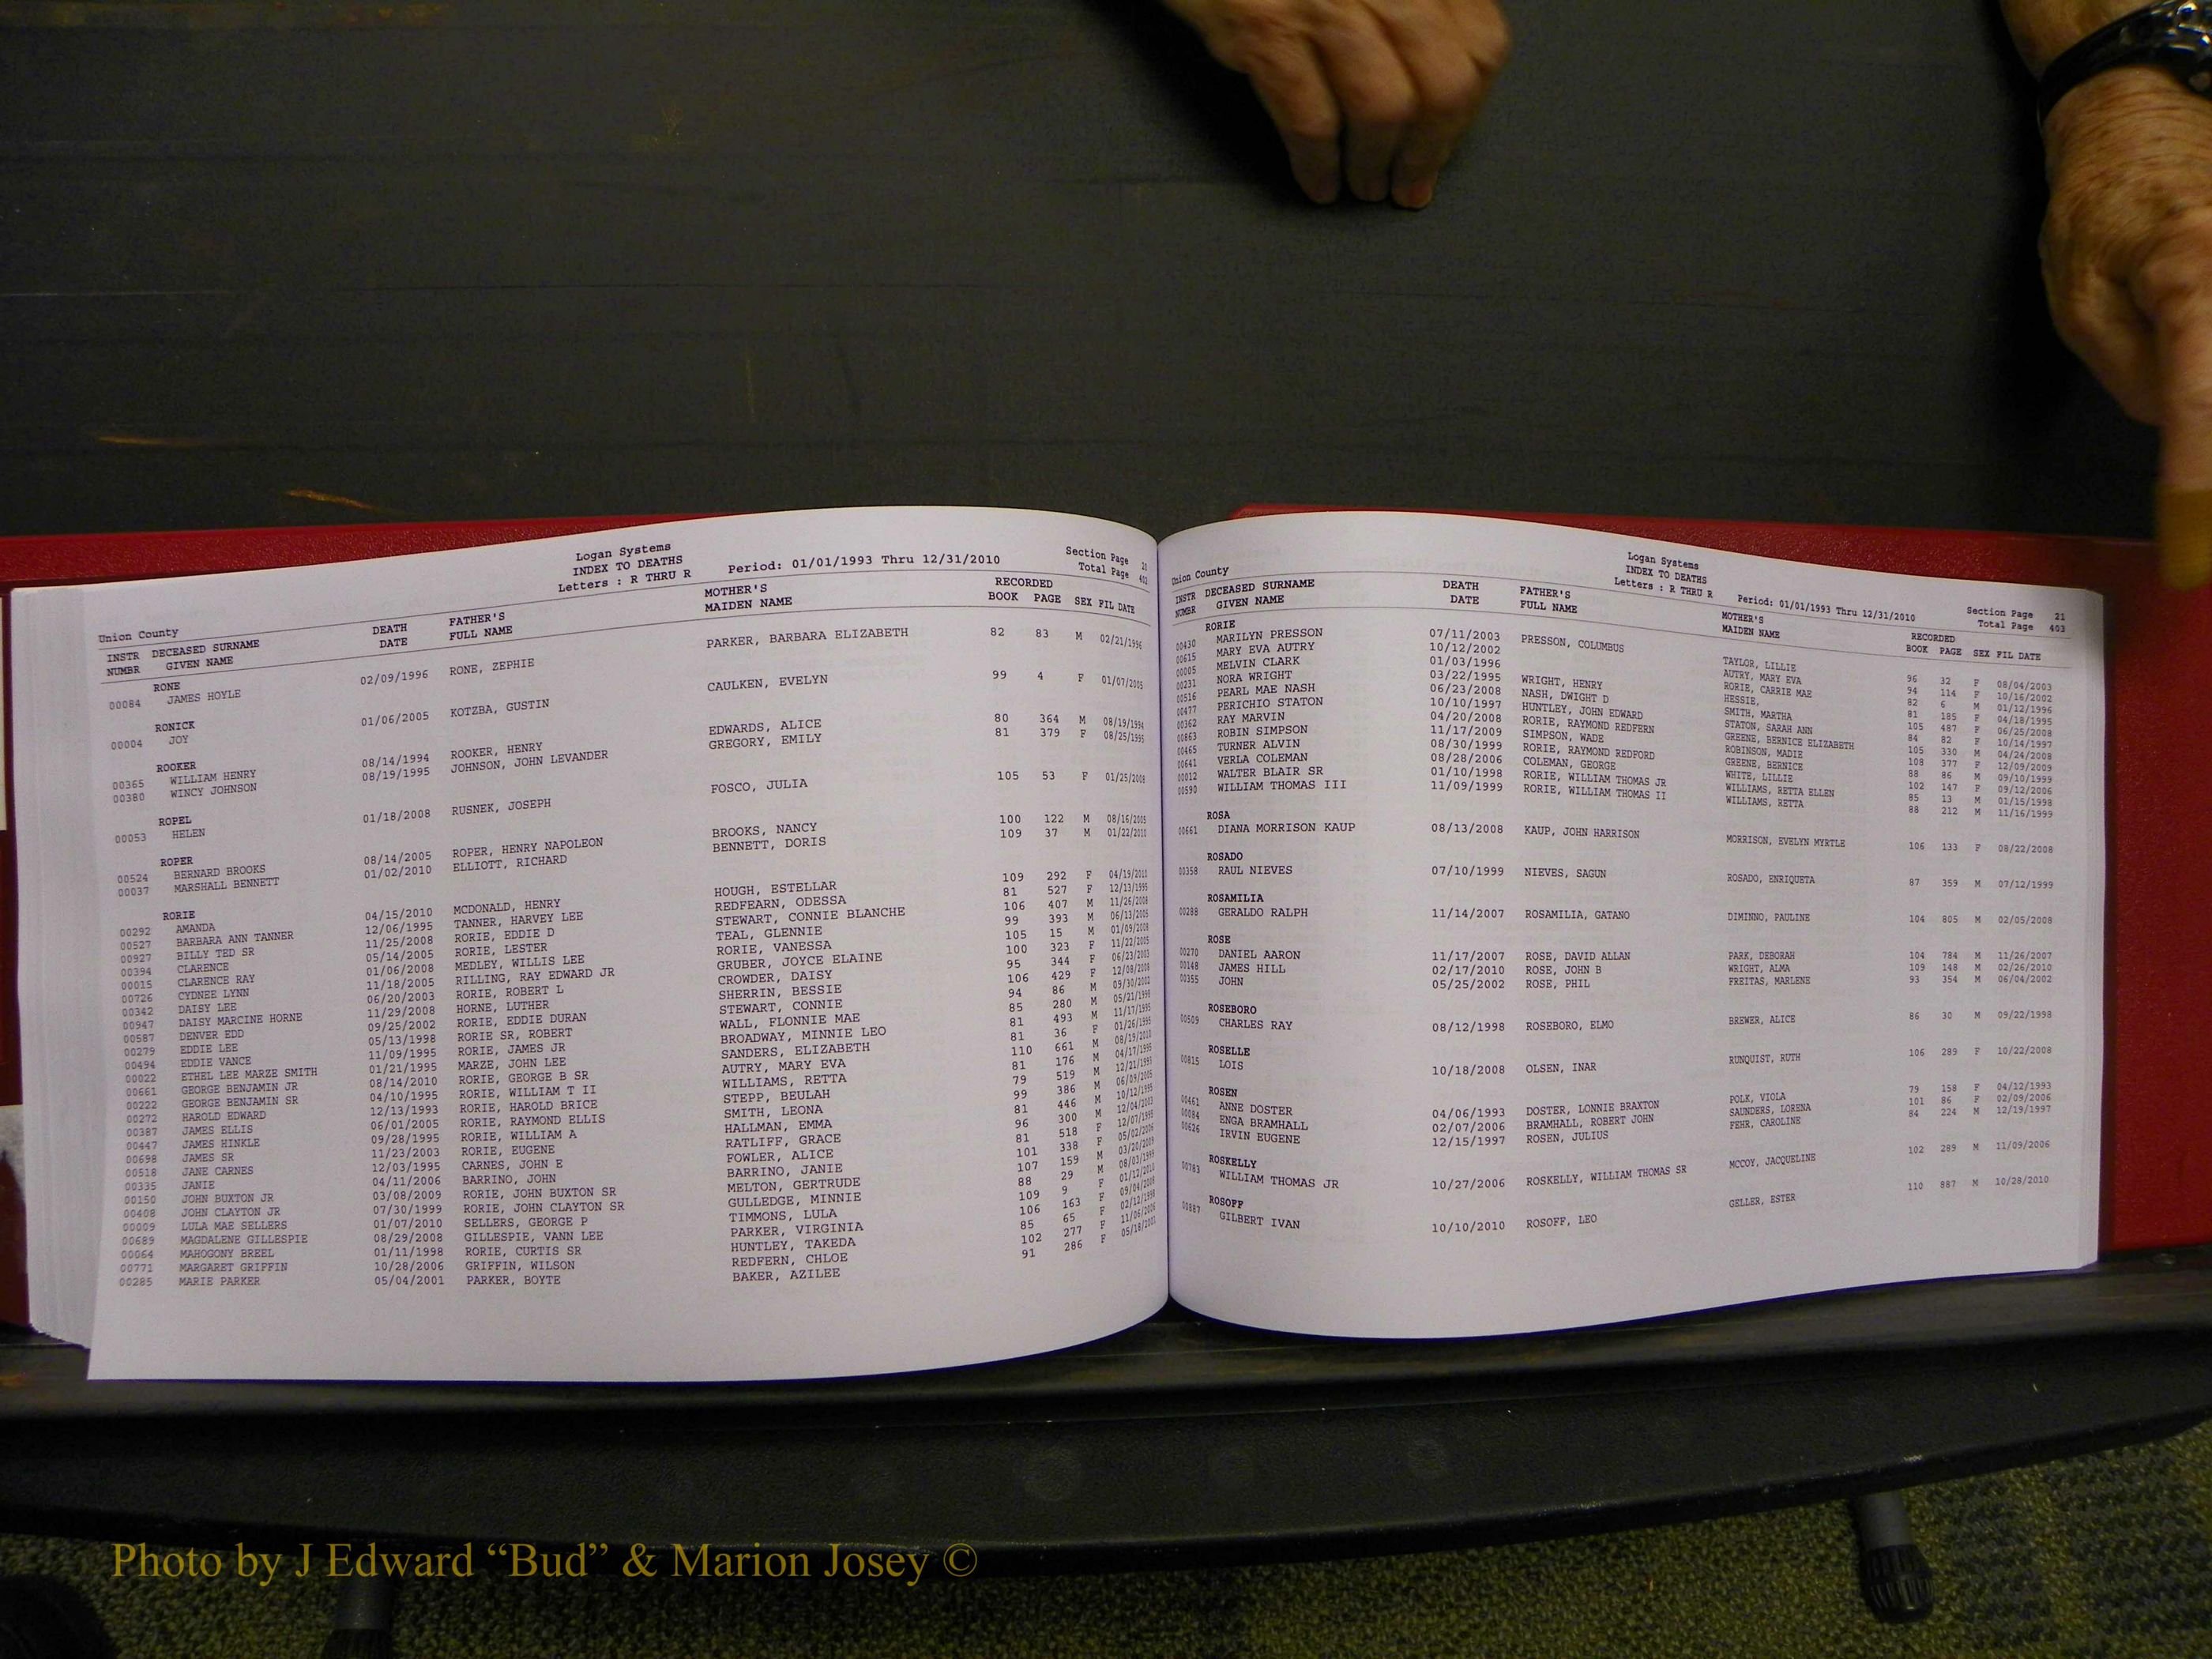 Logan Systems
INDEX TO DEATHS
Letters : R THRU R Period: 01/01/1993 Thru 12/31/2010
Section Page 20
Total Page 402
Union County
INSTR DECEASED SURNAME DEATH FATHER'S MOTHER'S RECORDED
NUMBR GIVEN NAME DATE FULL NAME MAIDEN NAME BOOK PAGE SEX FIL DATE
RONE
00084 JAMES HOYLE 02/09/1996 RONE, ZEPHIE PARKER, BARBARA ELIZABETH 82 83 M 02/21/1996
RONICK
00004 JOY 01/06/2005 KOTZBA, GUSTIN CAULKEN, EVELYN 99 4 F 01/07/2005
ROOKER
00365 WILLIAM HENRY 08/14/1994 ROOKER, HENRY EDWARDS, ALICE 80 364 M 08/19/1994
00380 WINCY JOHNSON 08/19/1995 JOHNSON, JOHN LEVANDER GREGORY, EMILY 81 379 F 08/25/1995
ROPEL
00053 HELEN 01/18/2008 RUSNEK, JOSEPH FOSCO, JULIA 105 53 F 01/25/2008
ROPER
00524 BERNARD BROOKS 08/14/2005 ROPER, HENRY NAPOLEON BROOKS, NANCY 100 122 M 08/16/2005
00037 MARSHALL BENNETT 01/02/2010 ELLIOTT, RICHARD BENNETT, DORIS 109 37 M 01/22/2010
RORIE
00292 AMANDA 04/15/2010 MCDONALD, HENRY HOUGH, ESTELLAR 109 292 F 04/19/2010
00527 BARBARA ANN TANNER 12/06/1995 TANNER, HARVEY LEE REDFEARN, ODESSA 81 527 F 12/13/1995
00927 BILLY TED SR 11/25/2008 RORIE, EDDIE D STEWART, CONNIE BLANCHE 106 407 M 11/26/2008
00394 CLARENCE 05/14/2005 RORIE, LESTER TEAL, GLENNIE 99 393 M 06/13/2005
00015 CLARENCE RAY 01/06/2008 MEDLEY, WILLIS LEE RORIE, VANESSA 105 15 M 01/09/2008
00726 CYDNEE LYNN 11/18/2005 RILLING, RAY EDWARD JR GRUBER, JOYCE ELAINE 100 323 F 11/22/2005
00342 DAISY LEE 06/20/2003 RORIE, ROBERT L CROWDER, DAISY 95 344 F 06/23/2003
00947 DAISY MARCINE HORNE 11/29/2008 HORNE, LUTHER SHERRIN, BESSIE 106 429 F 12/08/2008
00587 DENVER EDD 09/25/2002 RORIE, EDDIE DURAN STEWART, CONNIE 94 86 M 09/30/2002
00279 EDDIE LEE 05/13/1998 RORIE SR, ROBERT WALL, FLONNIE MAE 85 280 M 05/21/1998
00494 EDDIE VANCE 11/09/1995 RORIE, JAMES JR BROADWAY, MINNIE LEO 81 493 M 11/17/1995
00022 ETHEL LEE MARZE SMITH 01/21/1995 MARZE, JOHN LEE SANDERS, ELIZABETH 81 36 F 01/26/1995
00661 GEORGE BENJAMIN JR 08/14/2010 RORIE, GEORGE B SR AUTRY, MARY EVA 110 661 M 08/19/2010
00222 GEORGE BENJAMIN SR 04/10/1995 RORIE, WILLIAM T II WILLIAMS, RETTA 81 176 M 04/17/1995
00272 HAROLD EDWARD 12/13/1993 RORIE, HAROLD BRICE STEPP, BEULAH 79 519 M 12/21/1993
00387 JAMES ELLIS 06/01/2005 RORIE, RAYMOND ELLIS SMITH, LEONA 99 386 M 06/09/2005
00447 JAMES HINKLE 09/28/1995 RORIE, WILLIAM A HALLMAN, EMMA 81 446 M 10/12/1995
00698 JAMES SR 11/23/2003 RORIE, EUGENE RATLIFF, GRACE 96 300 M 12/04/2003
00518 JANE CARNES 12/03/1995 CARNES, JOHN E FOWLER, ALICE 81 518 F 12/07/1995
00335 JANIE 04/11/2006 BARRINO, JOHN BARRINO, JANIE 101 338 F 05/02/2006
00150 JOHN BUXTON JR 03/08/2009 RORIE, JOHN BUXTON SR MELTON, GERTRUDE 107 159 M 03/20/2009
00408 JOHN CLAYTON JR 07/30/1999 RORIE, JOHN CLAYTON SR GULLEDGE, MINNIE 88 29 M 08/03/1999
00009 LULA MAE SELLERS 01/07/2010 SELLERS, GEORGE P TIMMONS, LULA 109 9 F 01/12/2010
00689 MAGDALENE GILLESPIE 08/29/2008 GILLESPIE, VANN LEE PARKER, VIRGINIA 106 163 F 09/04/2008
00064 MAHOGONY BREEL 01/11/1998 RORIE, CURTIS SR HUNTLEY, TAKEDA 85 65 F 02/12/1998
00771 MARGARET GRIFFIN 10/28/2006 GRIFFIN, WILSON REDFERN, CHLOE 102 277 F 11/06/2006
00285 MARIE PARKER 05/04/2001 PARKER, BOYTE BAKER, AZILEE 91 286 F 05/18/2001
Logan Systems
INDEX TO DEATHS
Letters : R THRU R Period: 01/01/1993 Thru 12/31/2010
Section Page 21
Total Page 403
Union County
INSTR DECEASED SURNAME DEATH FATHER'S MOTHER'S RECORDED
NUMBR GIVEN NAME DATE FULL NAME MAIDEN NAME BOOK PAGE SEX FIL DATE
RORIE
00430 MARILYN PRESSON 07/11/2003 PRESSON, COLUMBUS TAYLOR, LILLIE 96 32 F 08/04/2003
00615 MARY EVA AUTRY 10/12/2002 AUTRY, MARY EVA 94 114 F 10/16/2002
00005 MELVIN CLARK 01/03/1996 RORIE, CARRIE MAE 82 6 M 01/12/1996
00231 NORA WRIGHT 03/22/1995 WRIGHT, HENRY HESSIE, 81 185 F 04/18/1995
00516 PEARL MAE NASH 06/23/2008 NASH, DWIGHT D SMITH, MARTHA 105 487 F 06/25/2008
00477 PERICHIO STATON 10/10/1997 HUNTLEY, JOHN EDWARD STATON, SARAH ANN 84 82 F 10/14/1997
00362 RAY MARVIN 04/20/2008 RORIE, RAYMOND REDFERN GREENE, BERNICE ELIZABETH 105 330 M 04/24/2008
00863 ROBIN SIMPSON 11/17/2009 SIMPSON, WADE ROBINSON, MADIE 108 377 F 12/09/2009
00465 TURNER ALVIN 08/30/1999 RORIE, RAYMOND REDFORD GREENE, BERNICE 88 86 M 09/10/1999
00641 VERLA COLEMAN 08/28/2006 COLEMAN, GEORGE WHITE, LILLIE 102 147 F 09/12/2006
00012 WALTER BLAIR SR 01/10/1998 RORIE, WILLIAM THOMAS JR WILLIAMS, RETTA ELLEN 85 13 M 01/15/1998
00590 WILLIAM THOMAS III 11/09/1999 RORIE, WILLIAM THOMAS II WILLIAMS, RETTA 88 212 M 11/16/1999
ROSA
00661 DIANA MORRISON KAUP 08/13/2008 KAUP, JOHN HARRISON MORRISON, EVELYN MYRTLE 106 133 F 08/22/2008
ROSADO
00358 RAUL NIEVES 07/10/1999 NIEVES, SAGUN ROSADO, ENRIQUETA 87 359 M 07/12/1999
ROSAMILIA
00288 GERALDO RALPH 11/14/2007 ROSAMILIA, GATANO DIMINNO, PAULINE 104 805 M 02/05/2008
ROSE
00270 DANIEL AARON 11/17/2007 ROSE, DAVID ALLAN PARK, DEBORAH 104 784 M 11/26/2007
00148 JAMES HILL 02/17/2010 ROSE, JOHN B WRIGHT, ALMA 109 148 M 02/26/2010
00355 JOHN 05/25/2002 ROSE, PHIL FREITAS, MARLENE 93 354 M 06/04/2002
ROSEBORO
00509 CHARLES RAY 08/12/1998 ROSEBORO, ELMO BREWER, ALICE 86 30 M 09/22/1998
ROSELLE
00815 LOIS 10/18/2008 OLSEN, INAR RUNQUIST, RUTH 106 289 F 10/22/2008
ROSEN
00461 ANNE DOSTER 04/06/1993 DOSTER, LONNIE BRAXTON POLK, VIOLA 79 158 F 04/12/1993
00084 ENGA BRAMHALL 02/07/2006 BRAMHALL, ROBERT JOHN SAUNDERS, LORENA 101 86 F 02/09/2006
00626 IRVIN EUGENE 12/15/1997 ROSEN, JULIUS FEHR, CAROLINE 84 224 M 12/19/1997
ROSKELLY
00783 WILLIAM THOMAS JR 10/27/2006 ROSKELLY, WILLIAM THOMAS SR MCCOY, JACQUELINE 102 289 M 11/09/2006
ROSOFF
00887 GILBERT IVAN 10/10/2010 ROSOFF, LEO GELLER, ESTER 110 887 M 10/28/2010
Photo by J Edward “Bud” & Marion Josey ©